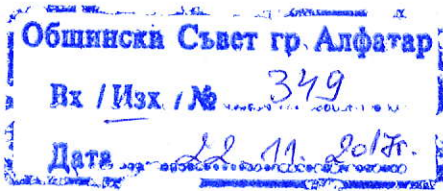 Общински Съвет гр. Алфатар
Вх / Изх / № 349
Дата 22. 11. 2017г.